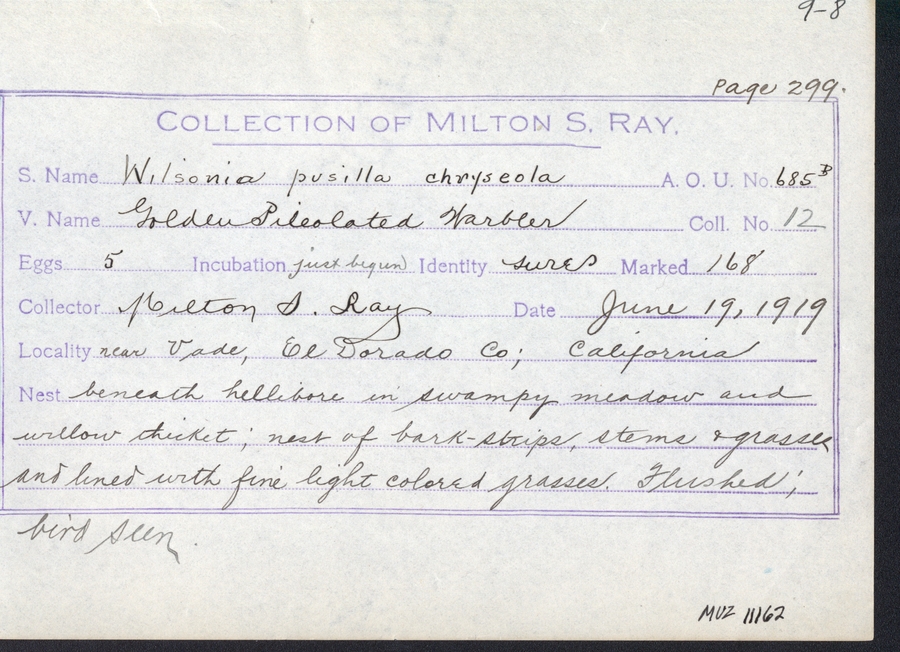 9-8
Page 299.
COLLECTION OF MILTON S. RAY.
S. Name Wilsonia pusilla chryseola A. O. U. No. 685 B
V. Name Golden Pileolated Warbler Coll. No. 12
Eggs 5 Incubation just begun Identity sure Marked 168
Collector Milton S. Ray Date June 19, 1919
Locality near Vade, El Dorado Co; California
Nest beneath hellibore in swampy meadow and
willow thicket; nest of bark-strips, stems & grasses
and lined with fine light colored grasses. Flushed;
bird seen.
MVZ 11162